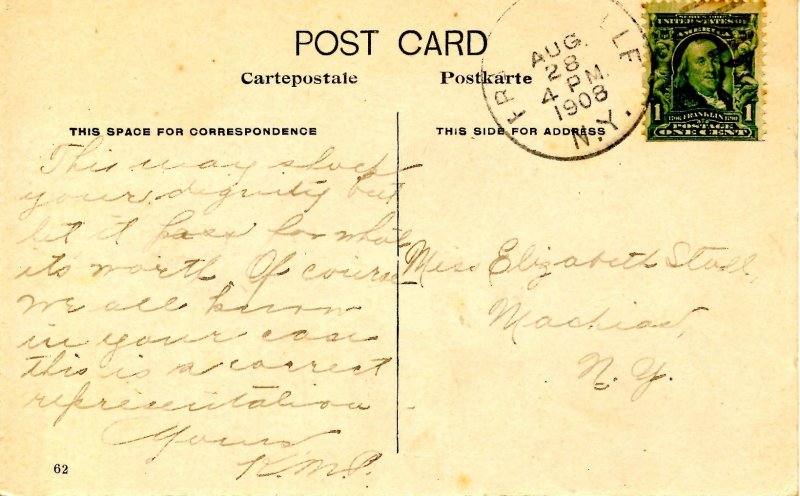 POST CARD
Cartepostale Postkarte
THIS SPACE FOR CORRESPONDENCE
THIS SIDE FOR ADDRESS
AUG.
28
4 PM
1908
N.Y.
SERIES 1902
UNITED STATES OF
AMERICA
1 1706 FRANKLIN 1790 1
POSTAGE
ONE CENT
This way shock
your dignity but
let it pass for what
its worth. Of course
we all know
in your case
this is a correct
representation
Yours
Miss Elizabeth Stoll,
Machias,
N.Y.
62